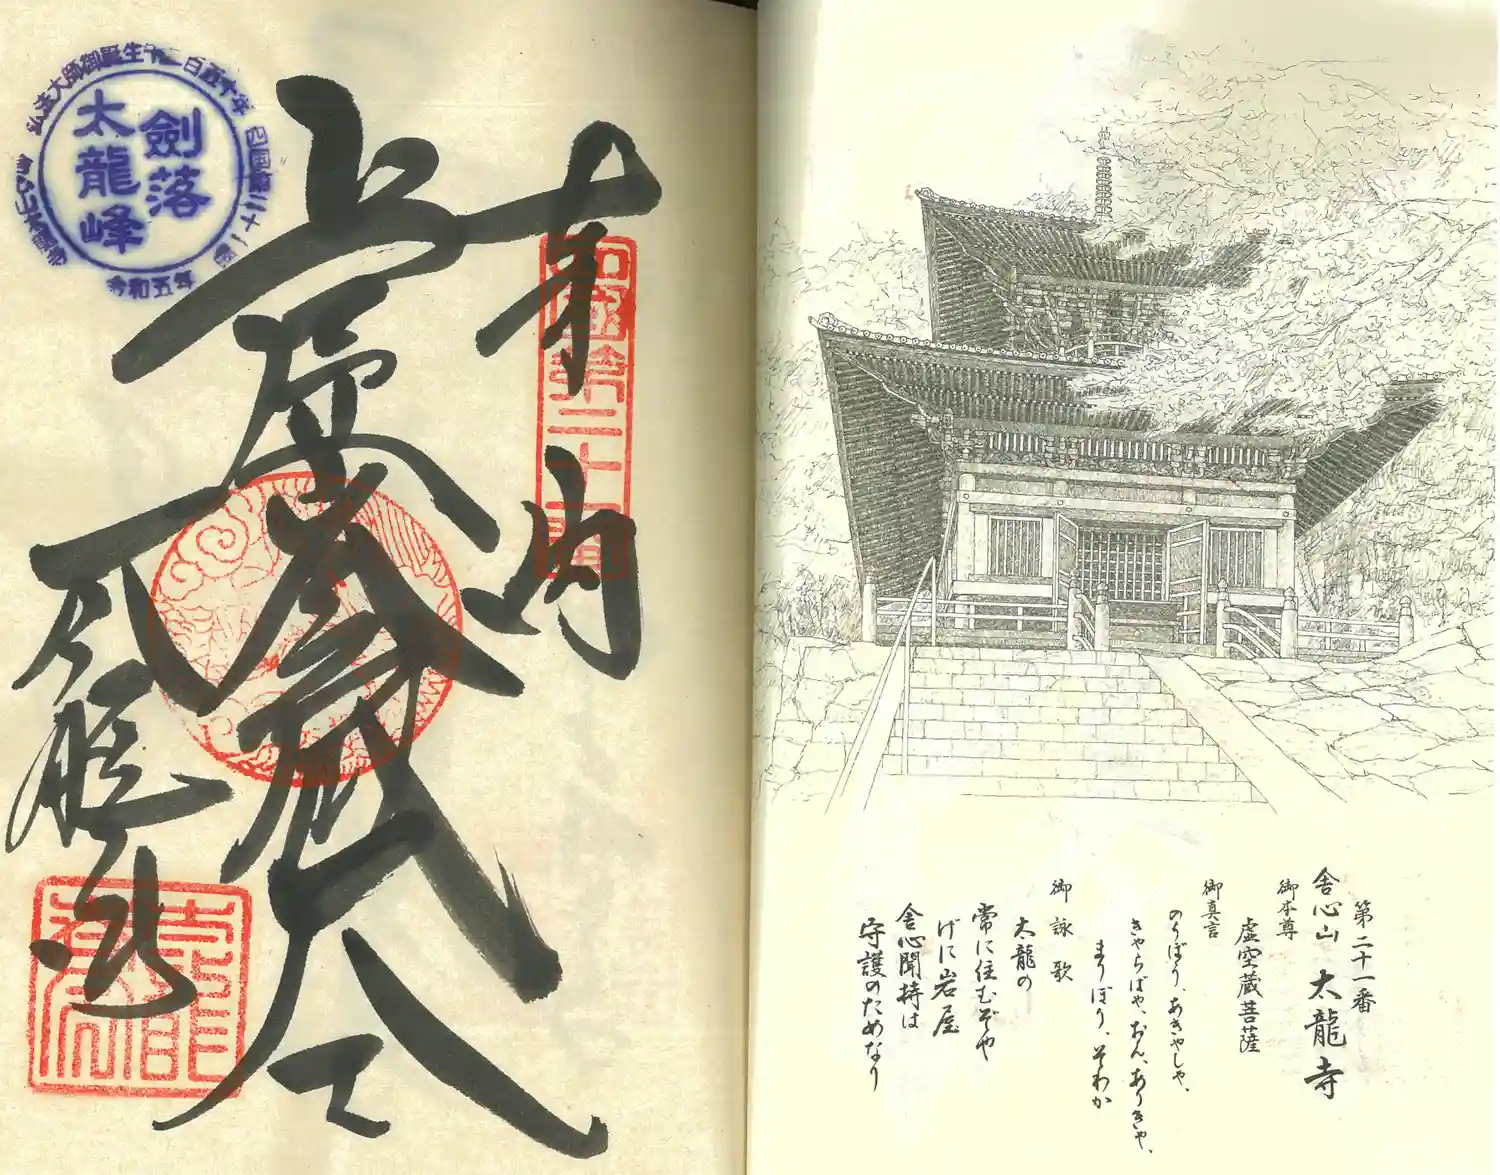 奉納
虚空蔵尊
太龍寺
四国第二十一番
弘法大師御誕生千二百五十年
四国第二十一番
令和五年
劍落
太龍峰
第二十一番
舎心山 太龍寺
御本尊
虚空蔵菩薩
御真言
のうぼう、あきゃしゃ、
きゃらばや、おん、ありきゃ、
まりぼり、そわか
御詠歌
太龍の
常に住むぞや
げに岩屋
舎心聞持は
守護のためなり